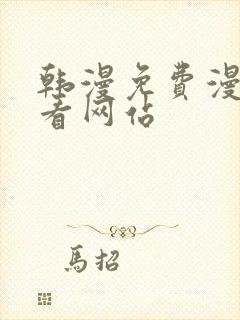 韩漫免费漫
看网站
馬招